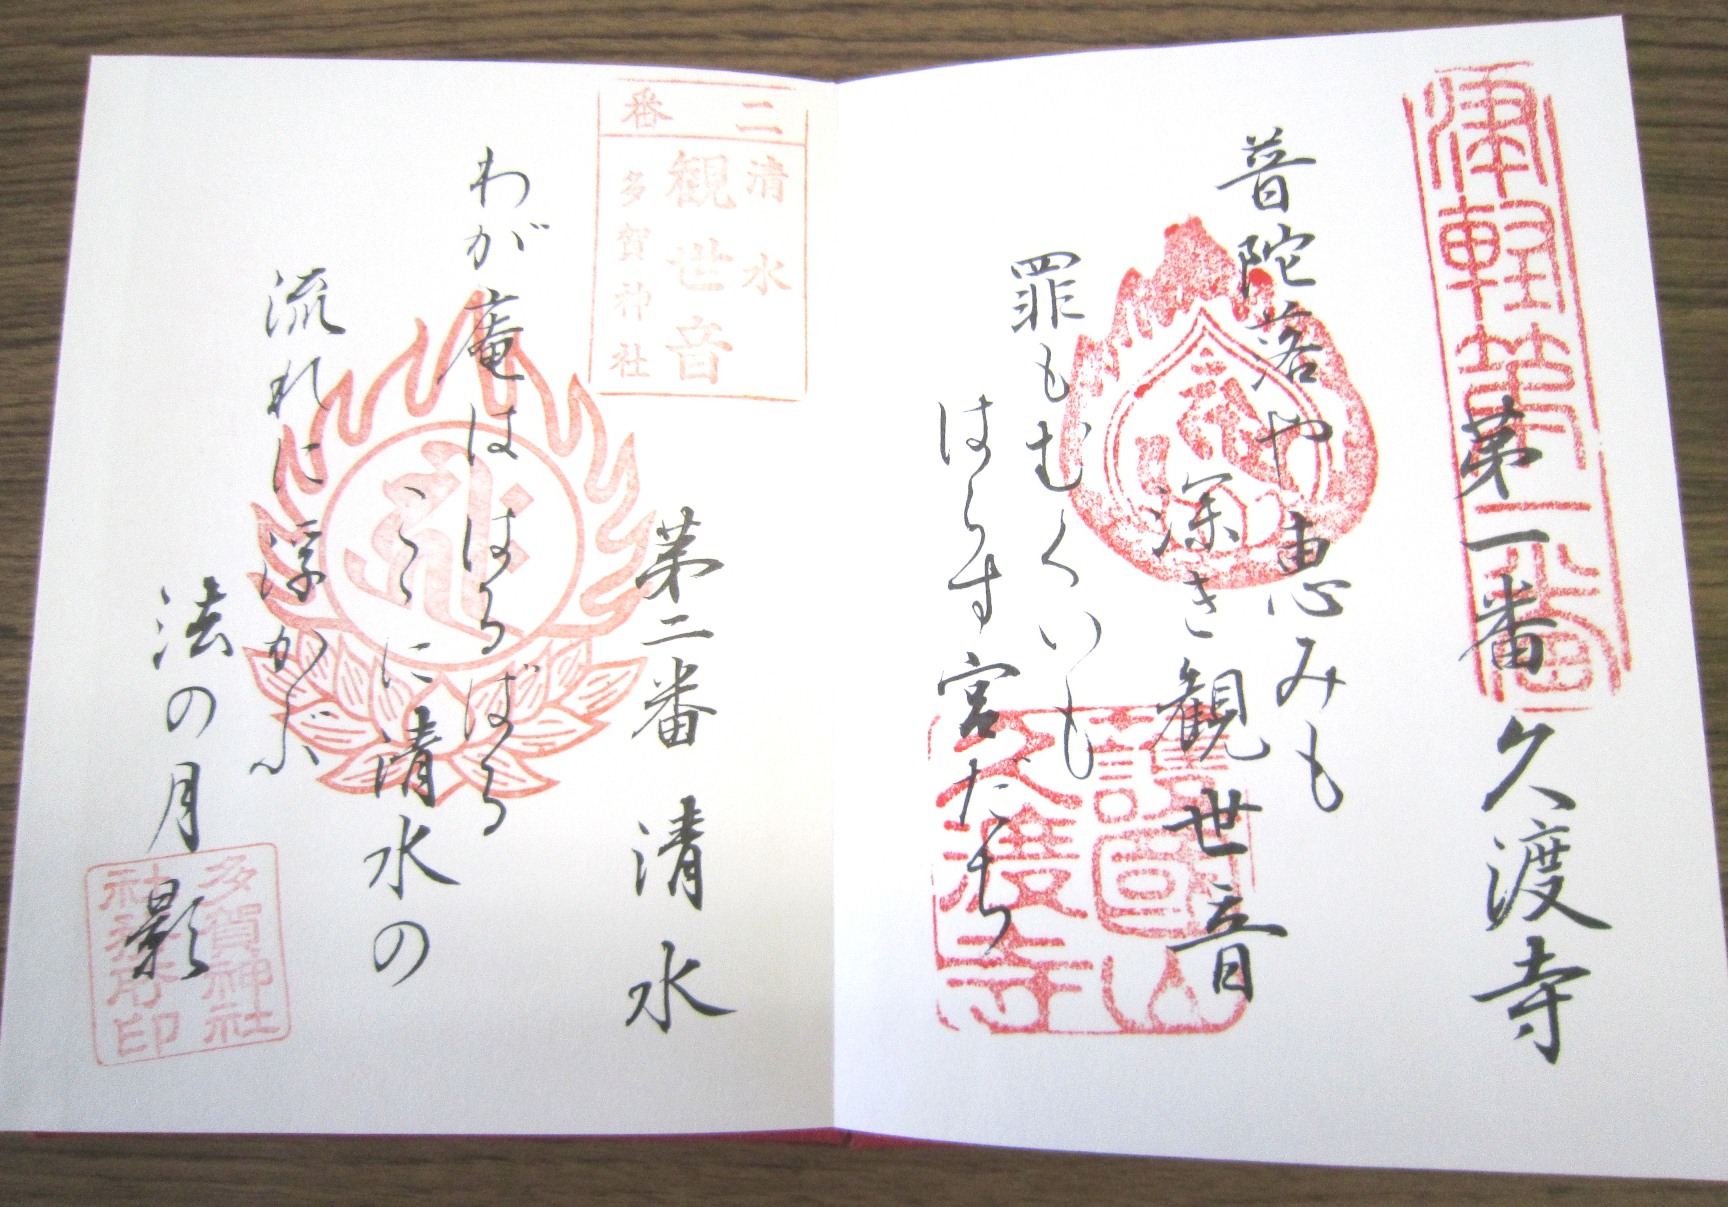 津軽第一番
第一番 久渡寺
普陀落や恵みも
深き観世音
罪もむくいも
はらす宮だち
護国山
久渡寺
二番
清水
観世音
多賀神社
第二番 清水
わが庵ははるばる
こゝに清水の
流れに浮かぶ
法の月影
多賀神社
社務所印